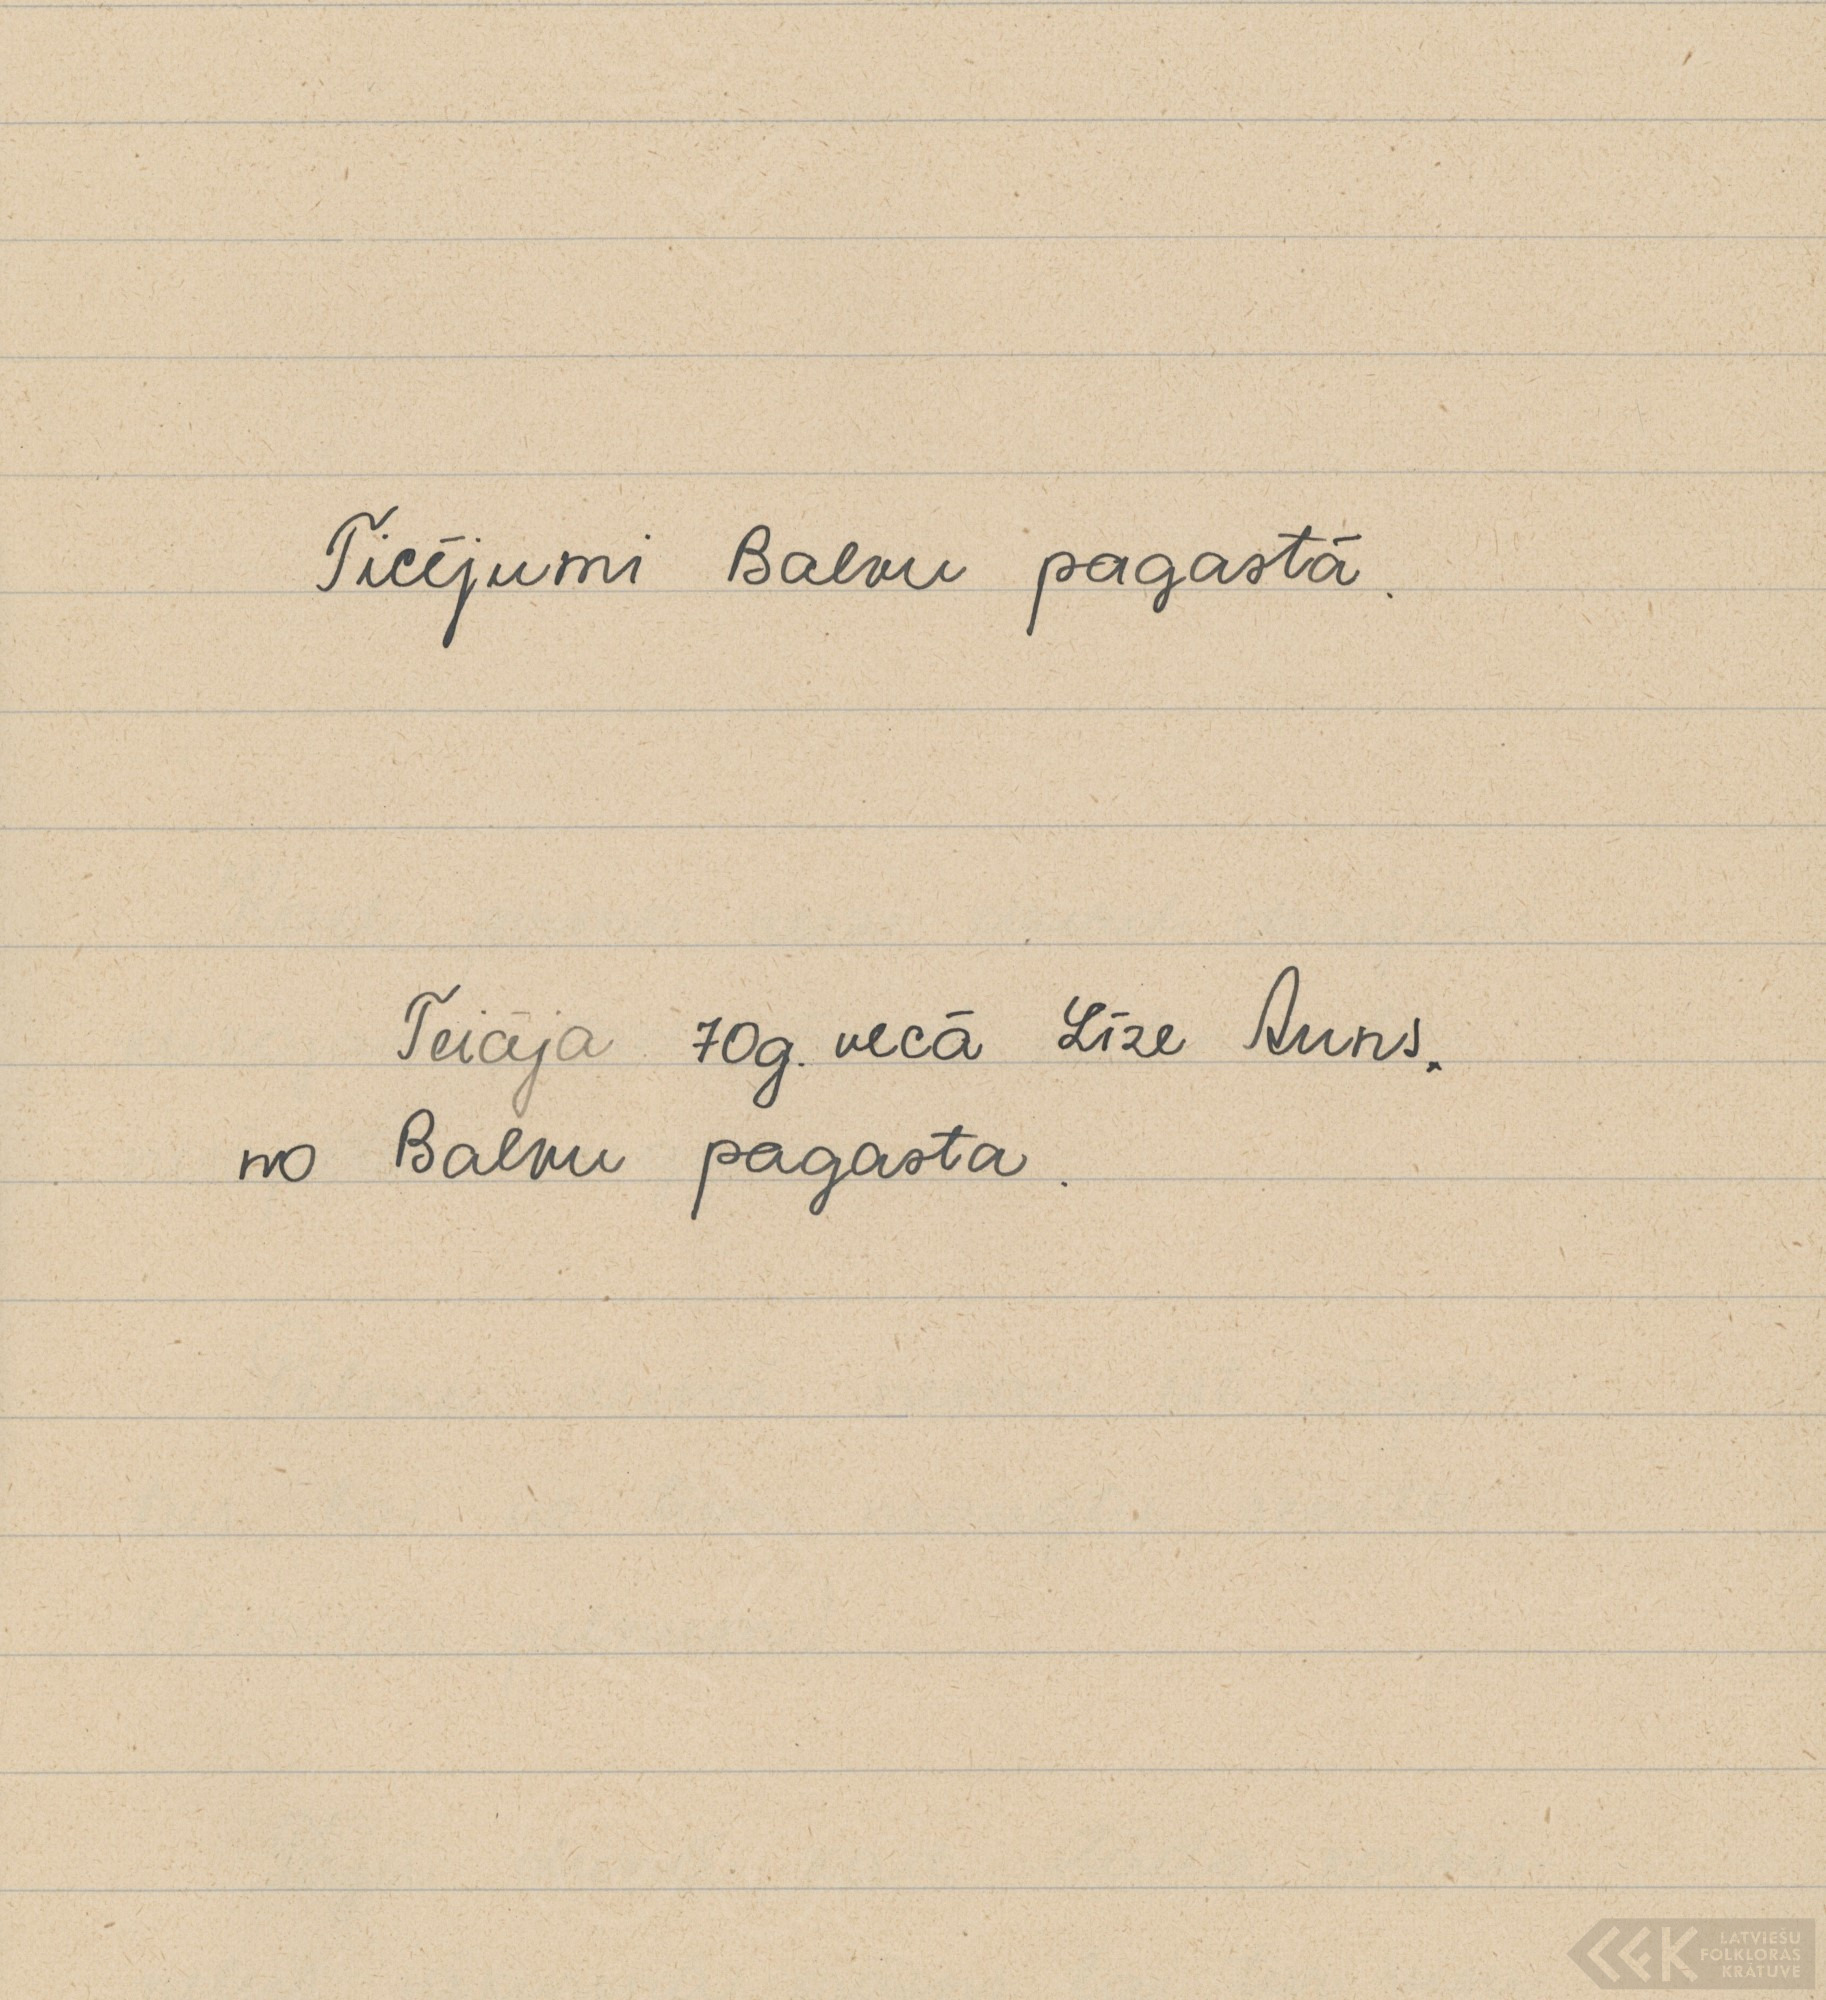 Ticējumi Balvu pagastā.
Teicēja 70g. vecā Līze Auns.
no Balvu pagasta.
LATVIEŠU
FOLKLORAS
KRĀTUVE